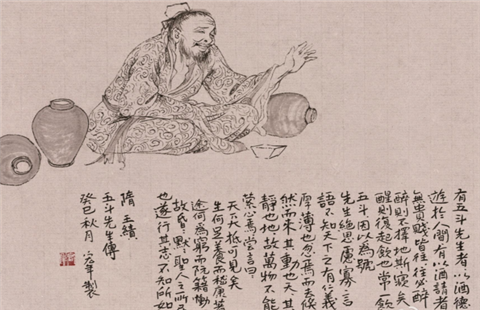 有五斗先生者以酒德
遊於人間有以酒請者
無貴賤皆往往必醉
醉則不擇地斯寢矣
醒則復起飲也常一飲
五斗因以為號
先生絕思慮寡言
語不知天下之有仁義
厚薄也忽焉而去倏
然而來其動也天其
靜也地故萬物不能
縈心焉嘗言曰
天下大抵可見矣
生何足養而嵇康
途何為窮而阮籍慟
故昏々默々聖人之所
也遂行其志不知所如
隋 王績
五斗先生傳
癸巳秋月 年製